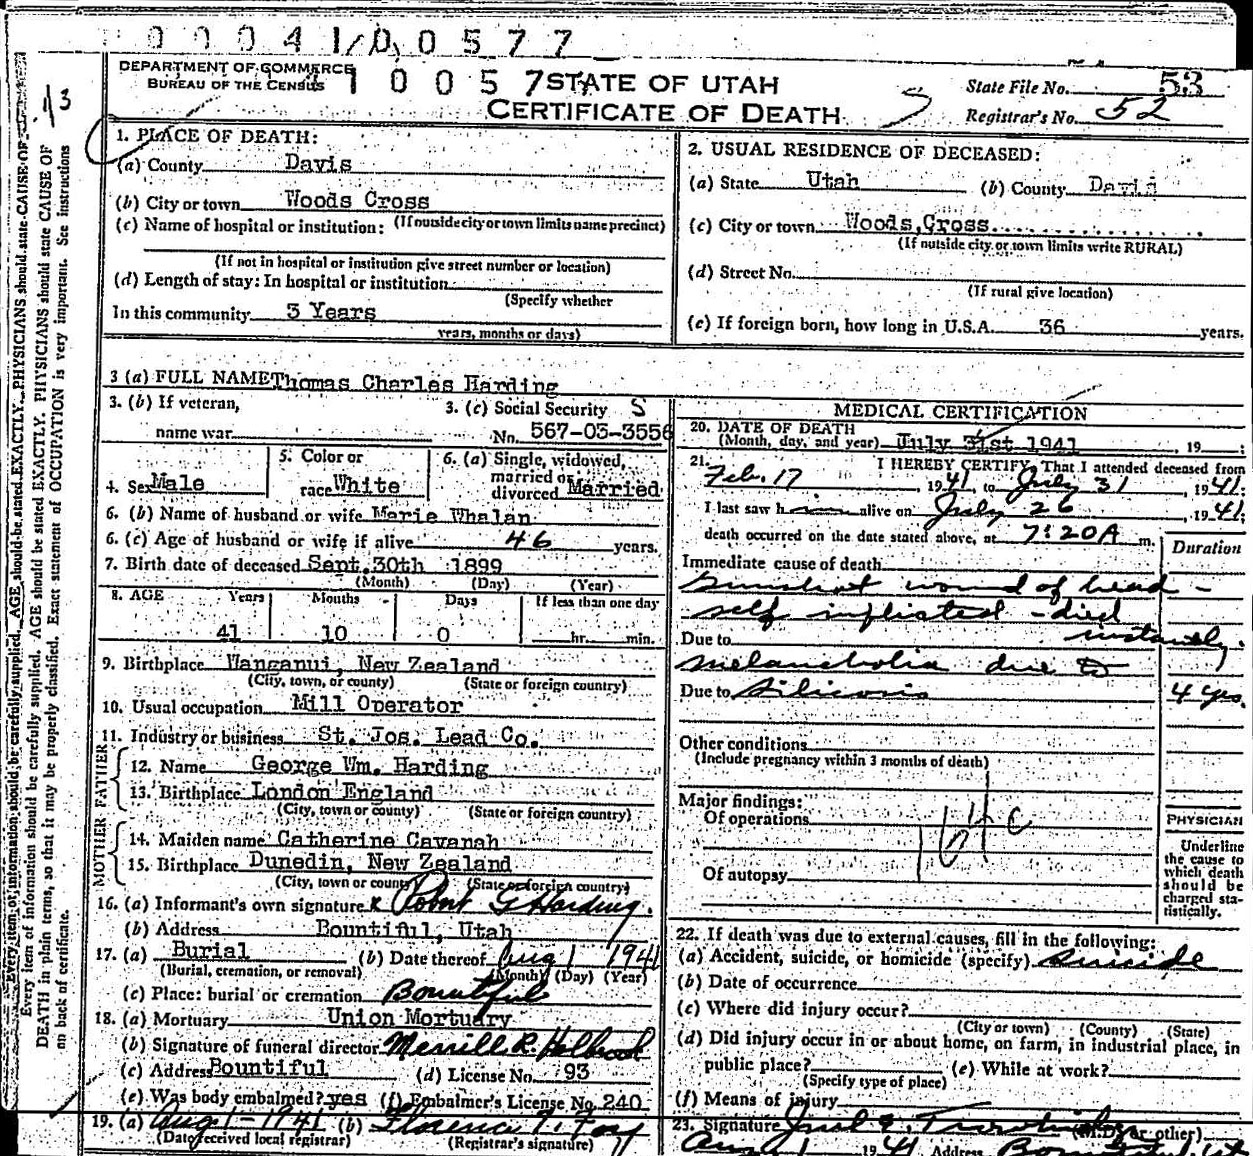 00041/0,00577
DEPARTMENT OF COMMERCE
BUREAU OF THE CENSUS
1 0 0 5 7
STATE OF UTAH
CERTIFICATE OF DEATH
State File No. 53
Registrar's No. 52
Every item of information should be carefully supplied. AGE should be stated EXACTLY. PHYSICIANS should state CAUSE OF
DEATH in plain terms, so that it may be properly classified. Exact statement of OCCUPATION is very important. See instructions
on back of certificate.
1. PLACE OF DEATH:
(a) County Davis
(b) City or town Woods Cross
(If outside city or town limits name precinct)
(c) Name of hospital or institution:
(If not in hospital or institution give street number or location)
(d) Length of stay: In hospital or institution
(Specify whether
In this community 3 Years
years, months or days)
2. USUAL RESIDENCE OF DECEASED:
(a) State Utah (b) County Davis
(c) City or town Woods Cross
(If outside city or town limits write RURAL)
(d) Street No.
(If rural give location)
(e) If foreign born, how long in U.S.A. 36 years.
3 (a) FULL NAME Thomas Charles Harding
3. (b) If veteran,
name war
3. (c) Social Security
No. 567-03-3556
4. Sex Male
5. Color or
race White
6. (a) Single, widowed,
married or
divorced Married
6. (b) Name of husband or wife Marie Whalan
6. (c) Age of husband or wife if alive 46 years.
7. Birth date of deceased Sept. 30th 1899
(Month) (Day) (Year)
8. AGE Years Months Days If less than one day
41 10 0 hr. min.
9. Birthplace Wanganui, New Zealand
(City, town, or county) (State or foreign country)
10. Usual occupation Mill Operator
11. Industry or business St. Jos. Lead Co.
FATHER
12. Name George Wm. Harding
13. Birthplace London England
(City, town or county) (State or foreign country)
MOTHER
14. Maiden name Catherine Cavanah
15. Birthplace Dunedin, New Zealand
(City, town or county) (State or foreign country)
16. (a) Informant's own signature x Robert G Harding.
(b) Address Bountiful, Utah
17. (a) Burial (b) Date thereof Aug 1 1941
(Burial, cremation, or removal) (Month) (Day) (Year)
(c) Place: burial or cremation Bountiful
18. (a) Mortuary Union Mortuary
(b) Signature of funeral director Merrill R. Holbrook
(c) Address Bountiful (d) License No. 93
(e) Was body embalmed? yes (f) Embalmer's License No. 240
19. (a) Aug 1-1941 (b) Florence
(Date received local registrar) (Registrar's signature)
MEDICAL CERTIFICATION
20. DATE OF DEATH
(Month, day, and year) July 31st 1941, 19 ;
21. I HEREBY CERTIFY, That I attended deceased from
Feb. 17, 1941, to July 31, 1941;
I last saw him alive on July 26, 1941;
death occurred on the date stated above, at 7:20A m.
Duration
Immediate cause of death
Gunshot wound of head -
self inflisted - died
Due to instantly.
melancholia due to
Due to Silicosis 4 yrs.
Other conditions
(Include pregnancy within 3 months of death)
Major findings:
Of operations
Of autopsy
PHYSICIAN
Underline
the cause to
which death
should be
charged sta-
tistically.
22. If death was due to external causes, fill in the following:
(a) Accident, suicide, or homicide (specify) Suicide
(b) Date of occurrence
(c) Where did injury occur?
(City or town) (County) (State)
(d) Did injury occur in or about home, on farm, in industrial place, in
public place? (e) While at work?
(Specify type of place)
(f) Means of injury
23. Signature (M.D. or other)
Aug 1 1941 Address